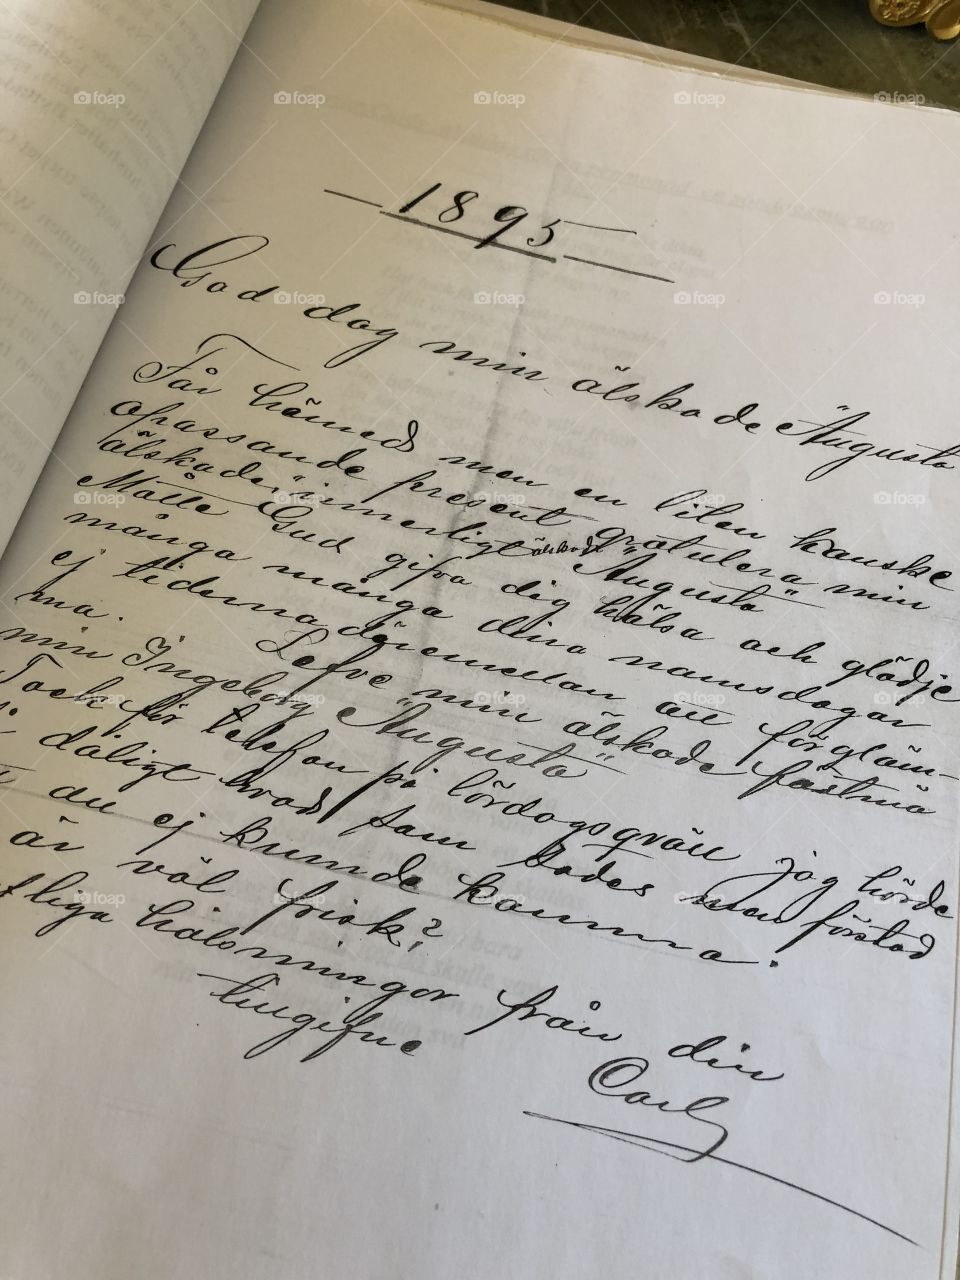 1895
God dag min älskade "Augusta
Får härmed men en liten kanske
opassande present gratulera min
älskade innerligt älskade "Augusta"
Måtte Gud gifva dig hälsa och glädje
många många dina namsdagar
ej tiderna däremellan att förgläm-
ma. Lefve min älskade fästmö
min Ingeborg "Augusta"
Tack för telefon på lördagsqväll jag hörde
dåligt hvad som sades man förstod
du ej kunde komma.
är väl frisk?
liga hälsningar från din
tillgifne
Carl